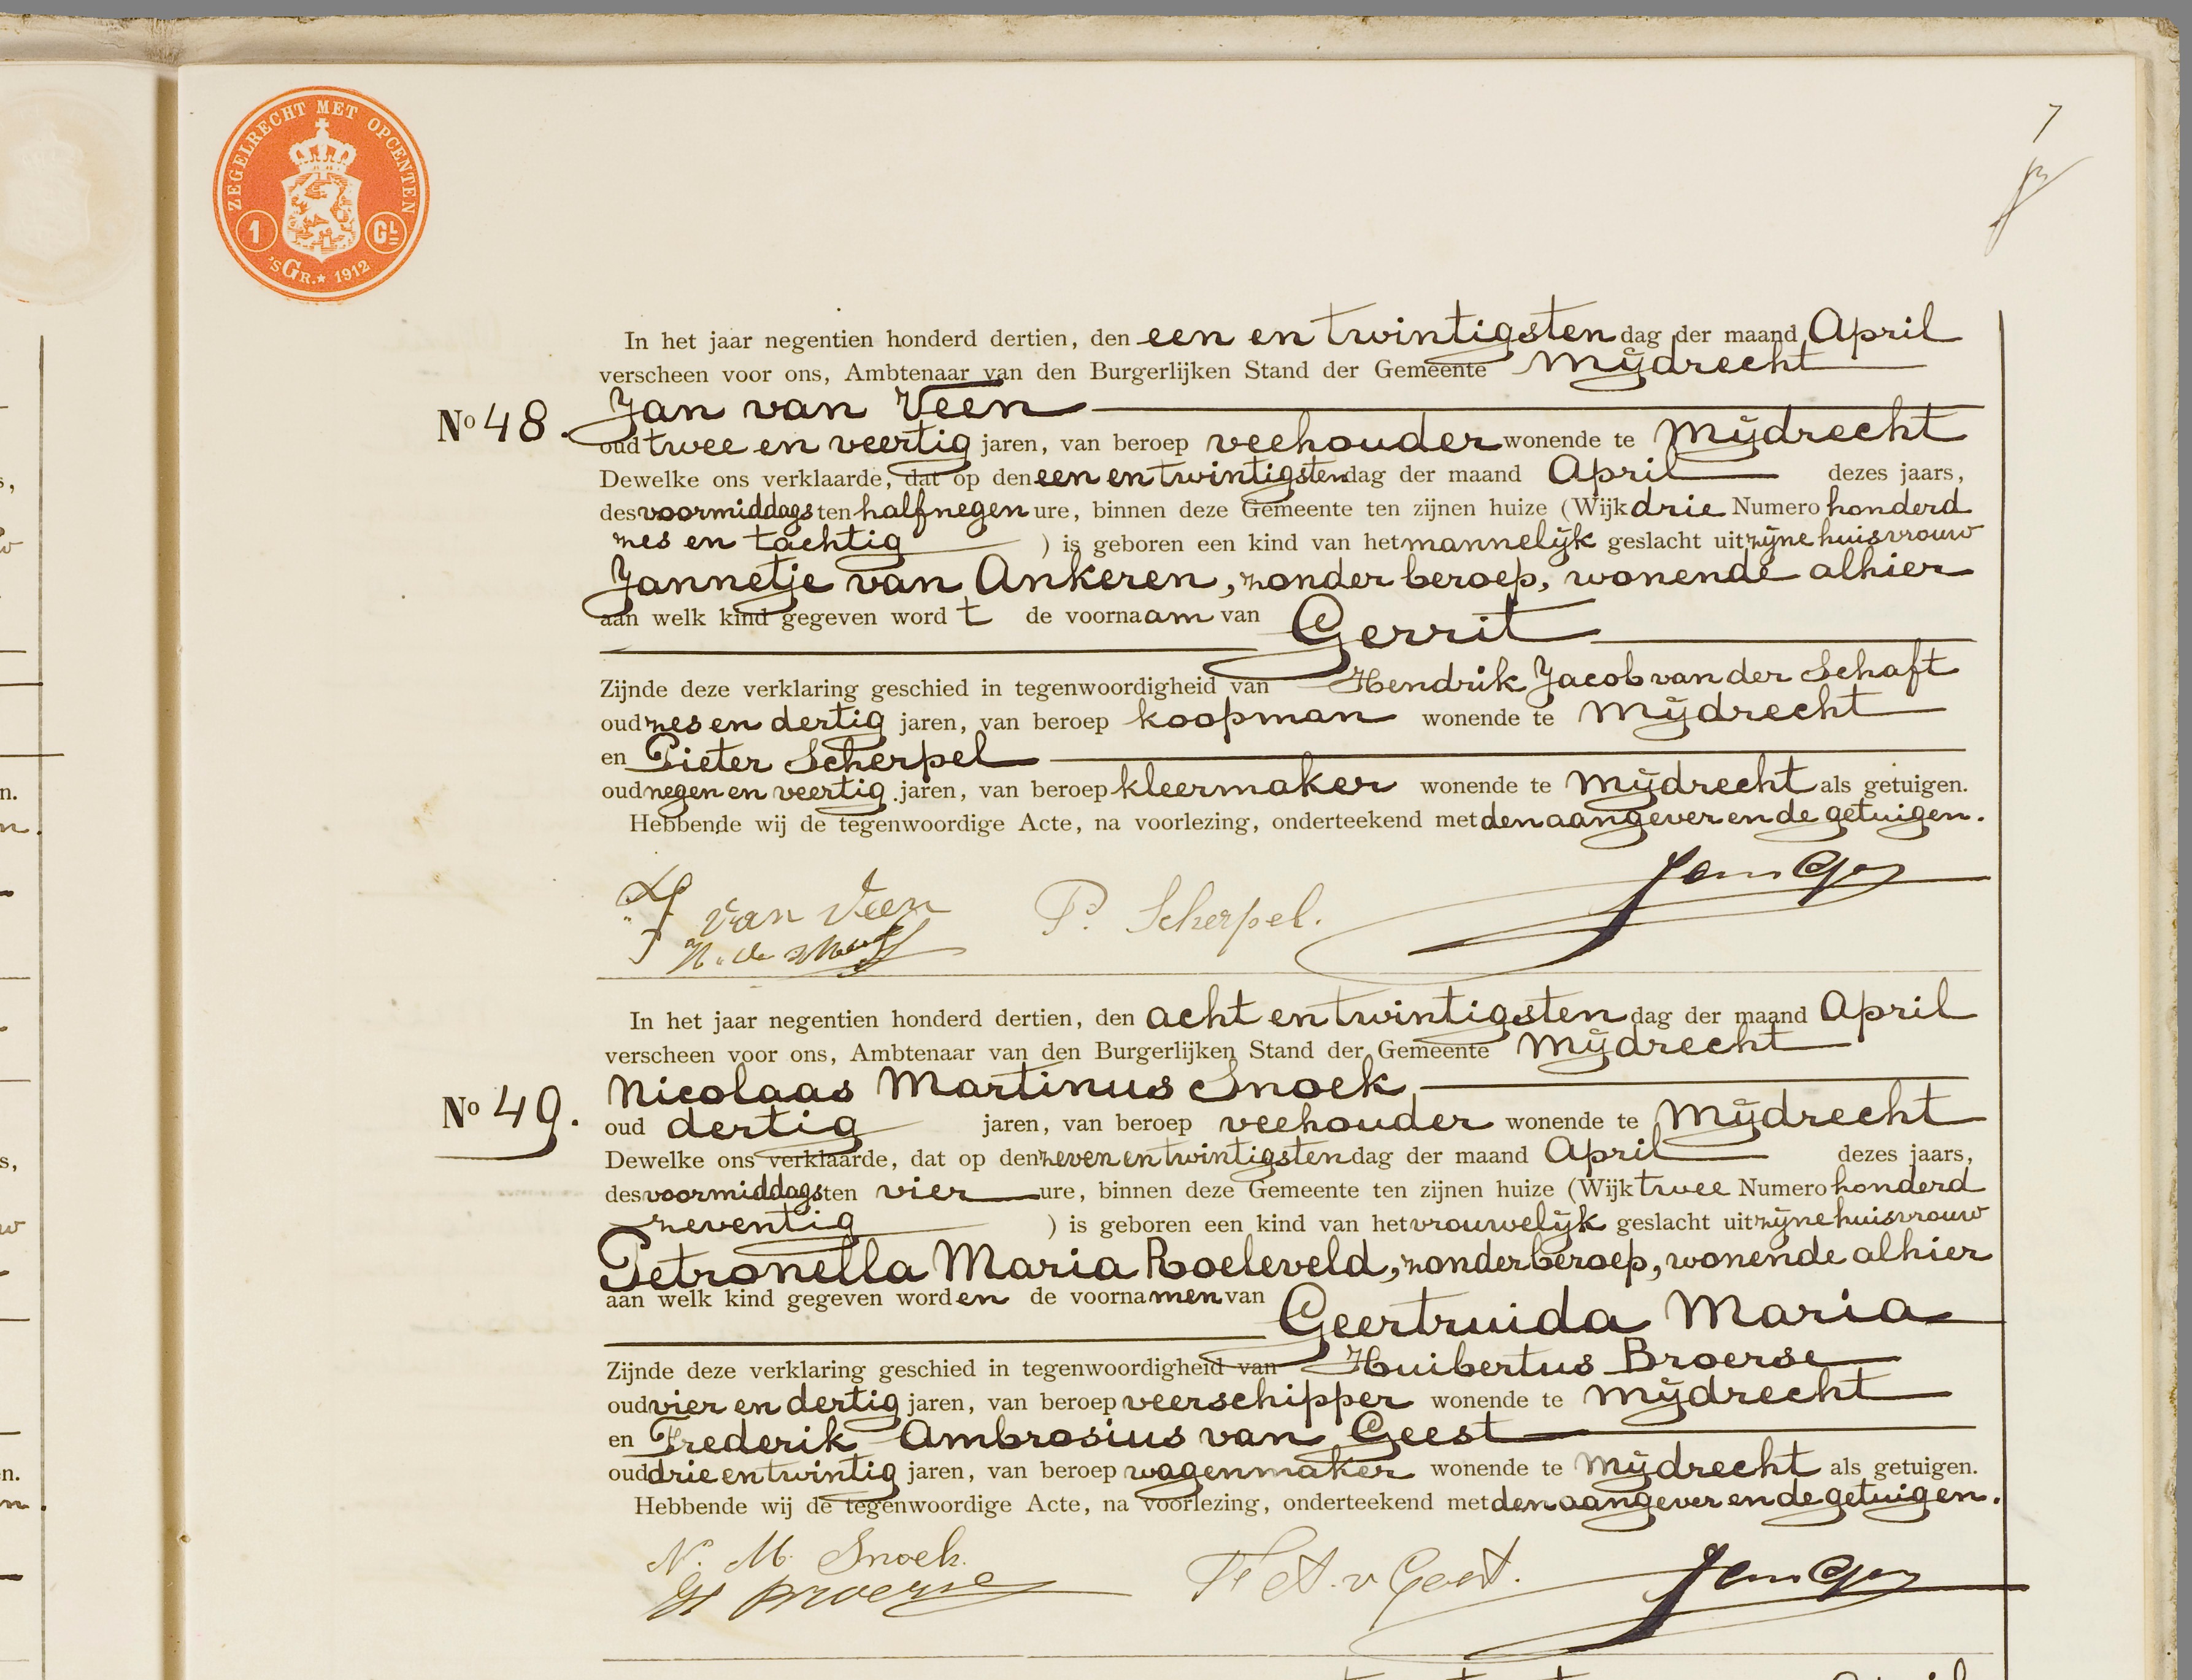 ZEGELRECHT MET OPCENTEN
1 GL
'SGR.★ 1912
7
In het jaar negentien honderd dertien, den een en twintigsten dag der maand April
verscheen voor ons, Ambtenaar van den Burgerlijken Stand der Gemeente Mijdrecht
No 48. Jan van Veen
oud twee en veertig jaren, van beroep veehouder wonende te Mijdrecht
Dewelke ons verklaarde, dat op den een en twintigsten dag der maand April dezes jaars,
des voormiddags ten half negen ure, binnen deze Gemeente ten zijnen huize (Wijk drie Numero honderd
zes en tachtig ) is geboren een kind van het mannelijk geslacht uit zijne huisvrouw
Jannetje van Ankeren, zonder beroep, wonende alhier
aan welk kind gegeven wordt de voornaam van Gerrit
Zijnde deze verklaring geschied in tegenwoordigheid van Hendrik Jacob van der Schaft
oud zes en dertig jaren, van beroep koopman wonende te Mijdrecht
en Pieter Scherpel
oud negen en veertig jaren, van beroep kleermaker wonende te Mijdrecht als getuigen.
Hebbende wij de tegenwoordige Acte, na voorlezing, onderteekend met den aangever en de getuigen.
van Veen P. Scherpel.
In het jaar negentien honderd dertien, den acht en twintigsten dag der maand April
verscheen voor ons, Ambtenaar van den Burgerlijken Stand der Gemeente Mijdrecht
No 49. Nicolaas Martinus Snoek
oud dertig jaren, van beroep veehouder wonende te Mijdrecht
Dewelke ons verklaarde, dat op den zeven en twintigsten dag der maand April dezes jaars,
des voormiddags ten vier ure, binnen deze Gemeente ten zijnen huize (Wijk twee Numero honderd
zeventig ) is geboren een kind van het vrouwelijk geslacht uit zijne huisvrouw
Petronella Maria Roeleveld, zonder beroep, wonende alhier
aan welk kind gegeven worden de voornamen van Geertruida Maria
Zijnde deze verklaring geschied in tegenwoordigheid van Huibertus Broerse
oud vier en dertig jaren, van beroep veerschipper wonende te Mijdrecht
en Frederik Ambrosius van Geest
oud drie en twintig jaren, van beroep wagenmaker wonende te Mijdrecht als getuigen.
Hebbende wij de tegenwoordige Acte, na voorlezing, onderteekend met den aangever en de getuigen.
N. M. Snoek. F. A. v Geest.
H Broerse